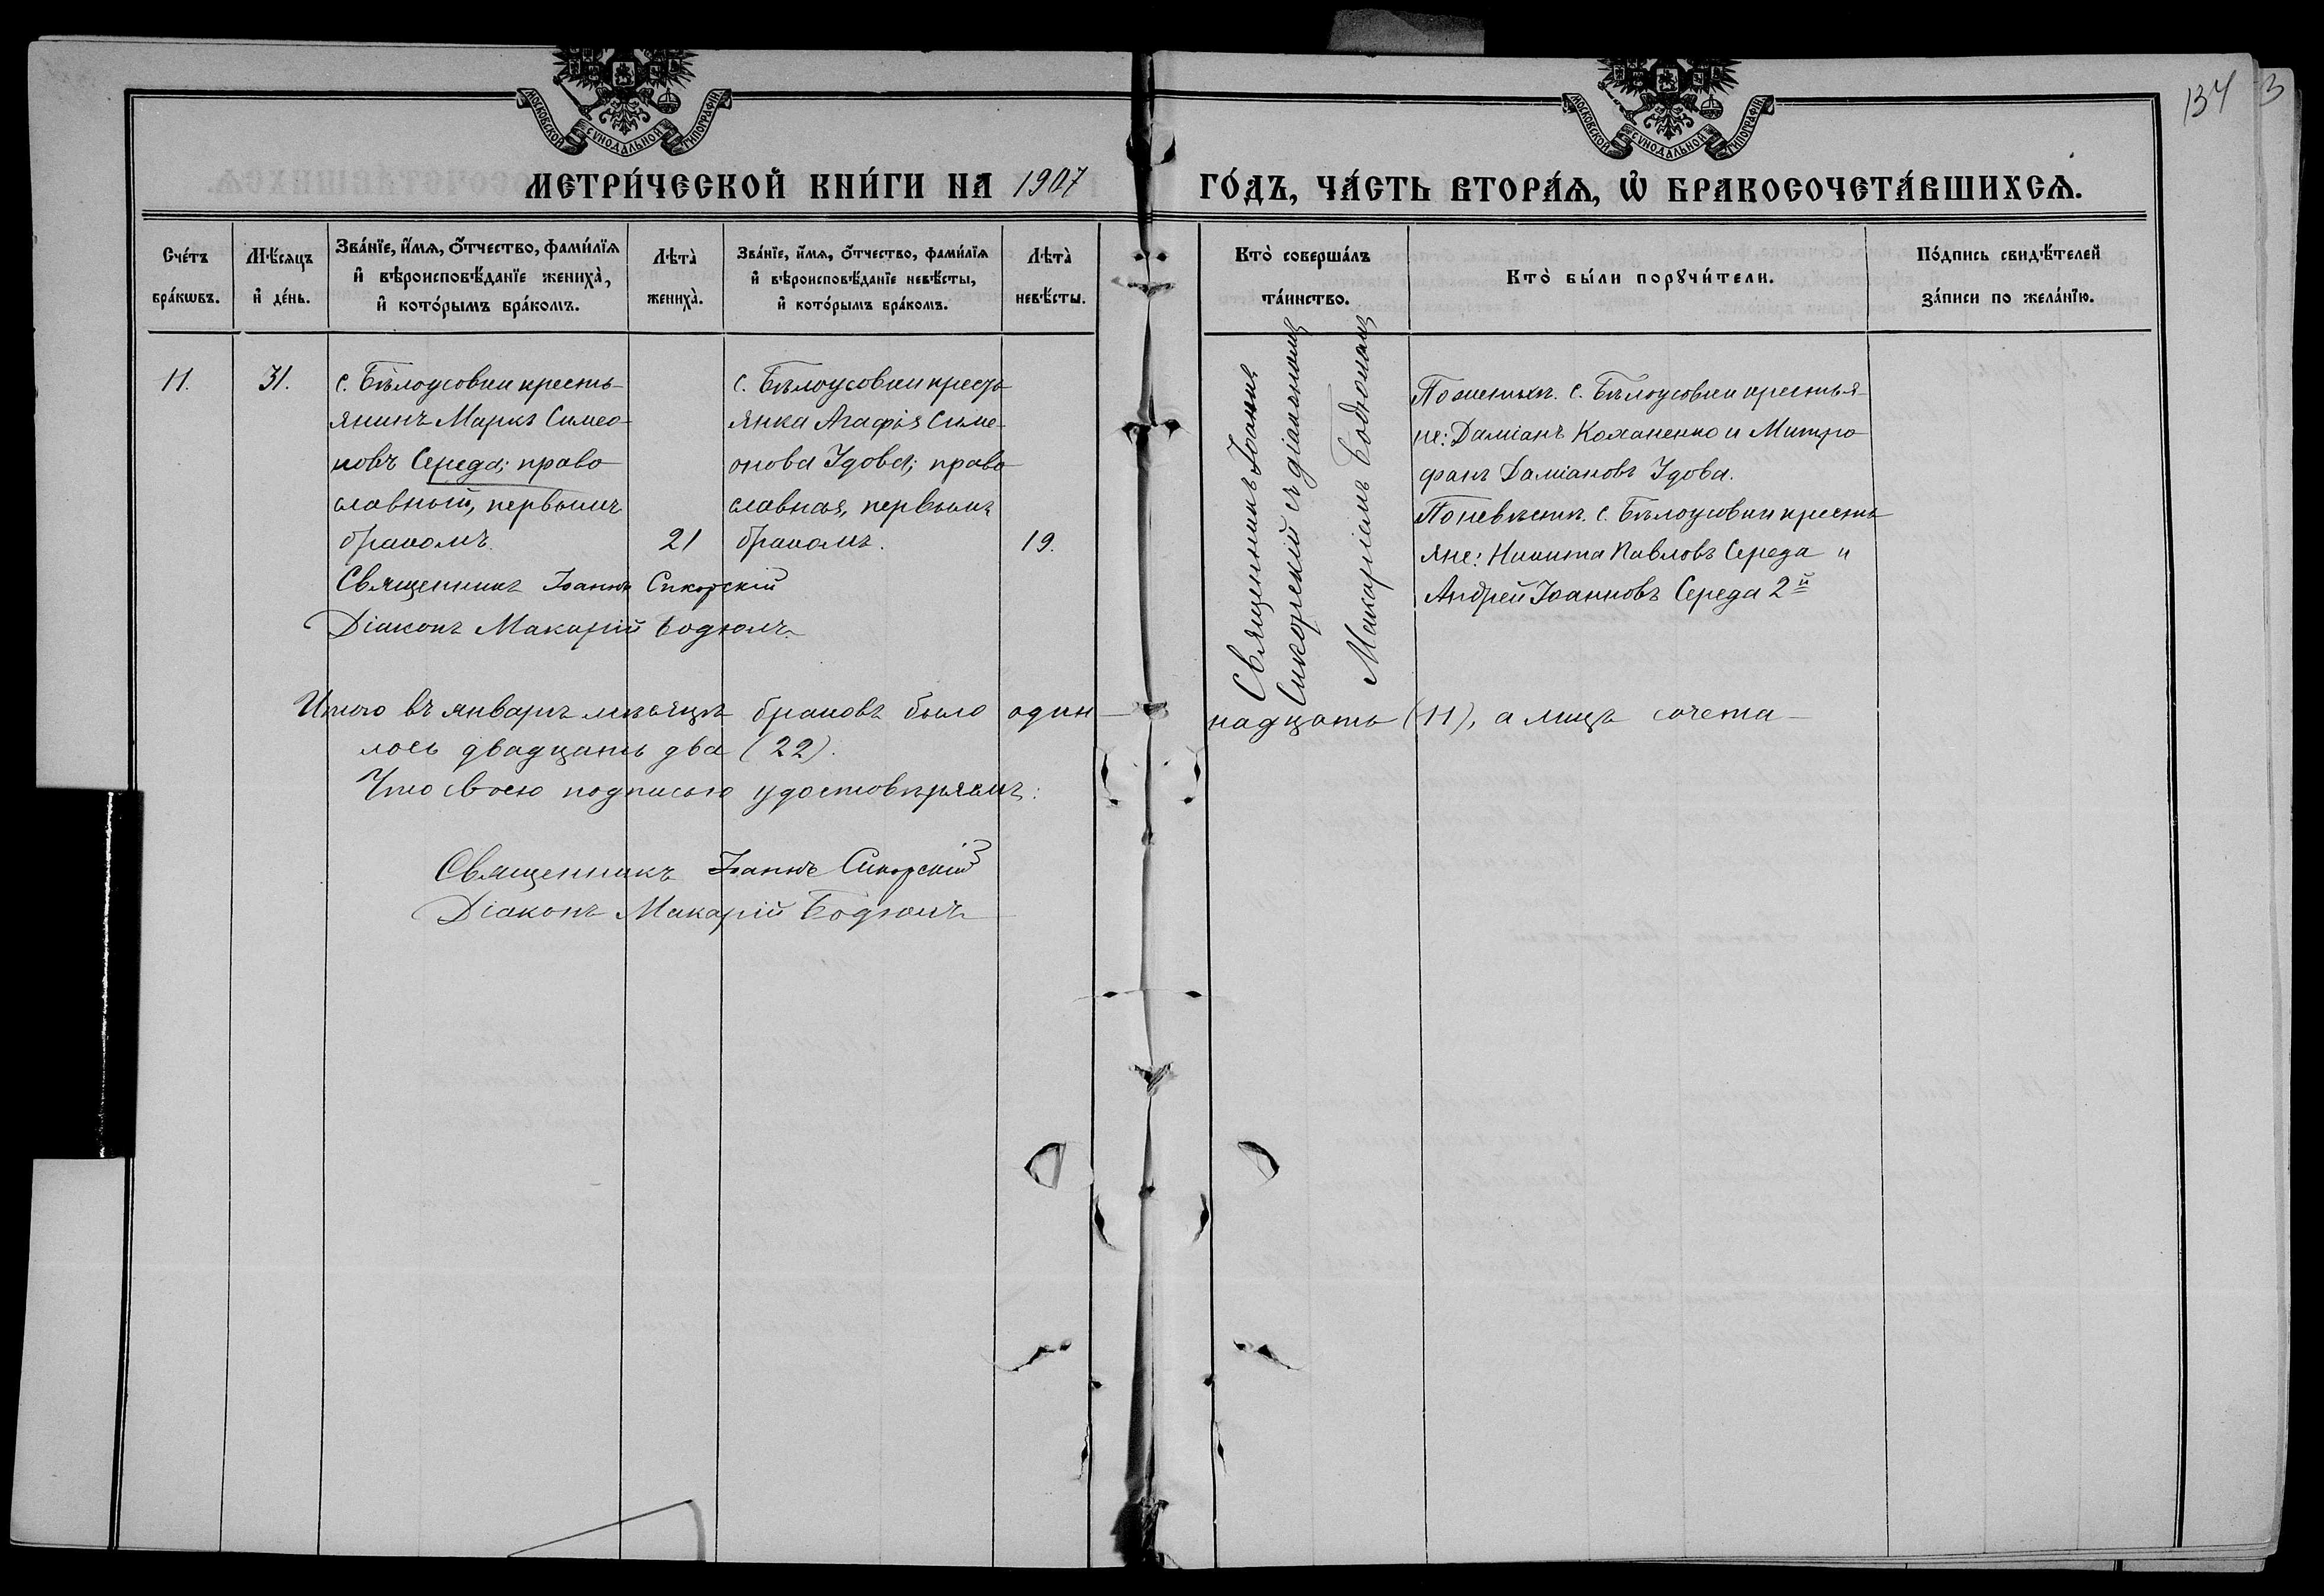 134
3
МОСКОВСКОЙ СѴНОДАЛЬНОЙ ТИПОГРАФІИ
МОСКОВСКОЙ СѴНОДАЛЬНОЙ ТИПОГРАФІИ
МЕТРИ́ЧЕСКОЙ КНИ́ГИ НА 1907
ГО́ДЪ, ЧА́СТЬ ВТОРА́Ѧ, Ѽ БРАКОСОЧЕТА́ВШИХСѦ.
Сче́тъ
бра́кѡвъ.
Мѣ́сяцъ
и҆ де́нь.
Зва́нїе, и҆́мя, ѻ҆́тчество, фами́лїя
и҆ вѣроисповѣ́данїе жениха̀,
и҆ кото́рымъ бра́комъ.
Лѣта̀
жениха̀.
Зва́нїе, и҆́мя, ѻ҆́тчество, фами́лїя
и҆ вѣроисповѣ́данїе невѣ́сты,
и҆ кото́рымъ бра́комъ.
Лѣта̀
невѣ́сты.
Кто̀ соверша́лъ
та́инство.
Кто̀ бы́ли порꙋчи́тели.
По́дпись свидѣ́телей
за́писи по жела́нїю.
11.
31.
с. Бѣлоусовки кресть-
янинъ Маркъ Симео-
новъ Середа; право-
славный, первымъ
бракомъ.
21
с. Бѣлоусовки кресть-
янка Агафія Симе-
онова Удова; право-
славная, первымъ
бракомъ.
19.
Священникъ Іоаннъ Сикорскій
Діаконъ Макарій Бодюлъ
Священникъ Іоаннъ
Сикорскій съ діакономъ
Макаріемъ Бодюломъ
По женихѣ. с. Бѣлоусовки крестья-
не: Даміанъ Коханенко и Митро-
фанъ Даміановъ Удова.
По невѣстѣ. с. Бѣлоусовки кресть-
яне: Никита Павловъ Середа и
Андрей Іоанновъ Середа 2й
Итого въ январѣ мѣсяцѣ браковъ было один-
надцать (11), а лицъ сочета-
лось двадцать два (22).
Что своею подписью удостовѣряемъ:
Священникъ Іоаннъ Сикорскій
Діаконъ Макарій Бодюлъ